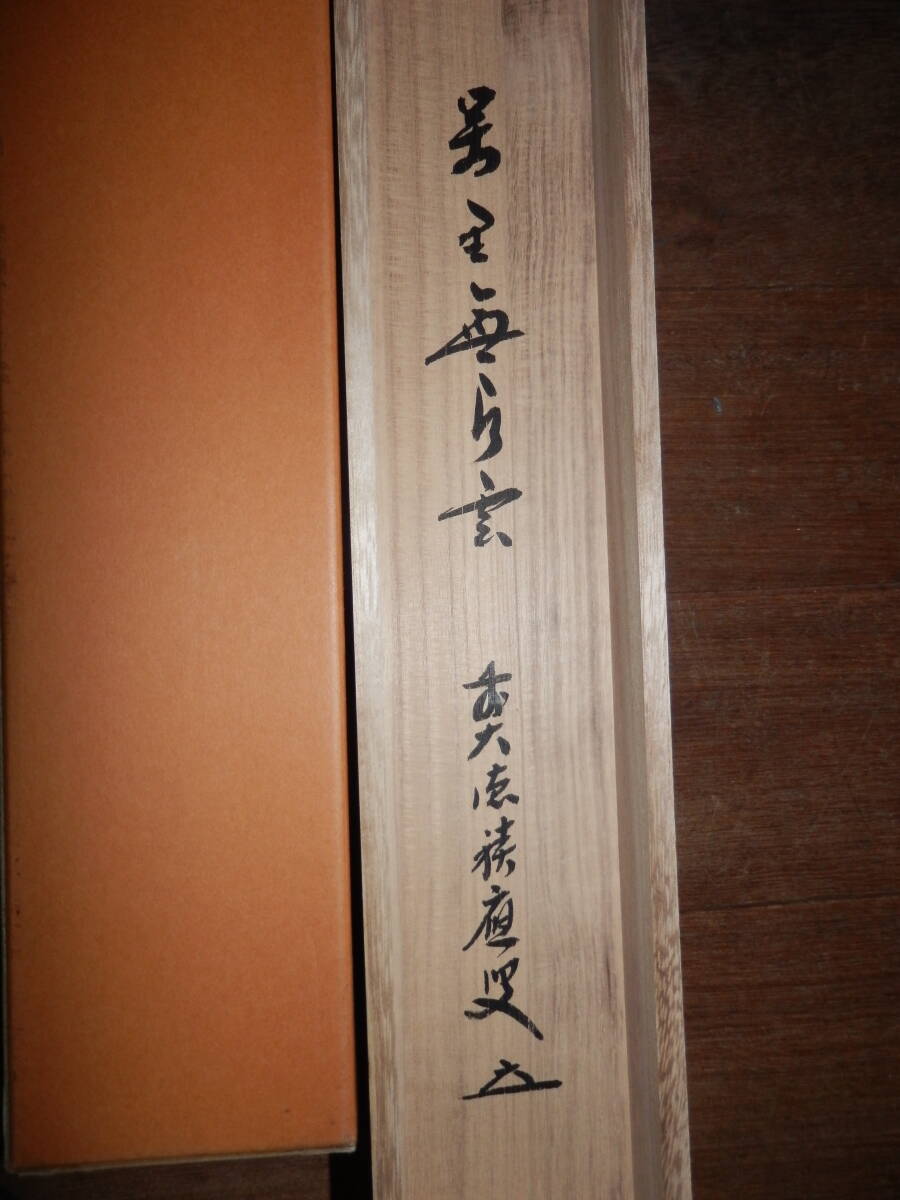 萬里無片雲 前大徳積應叟